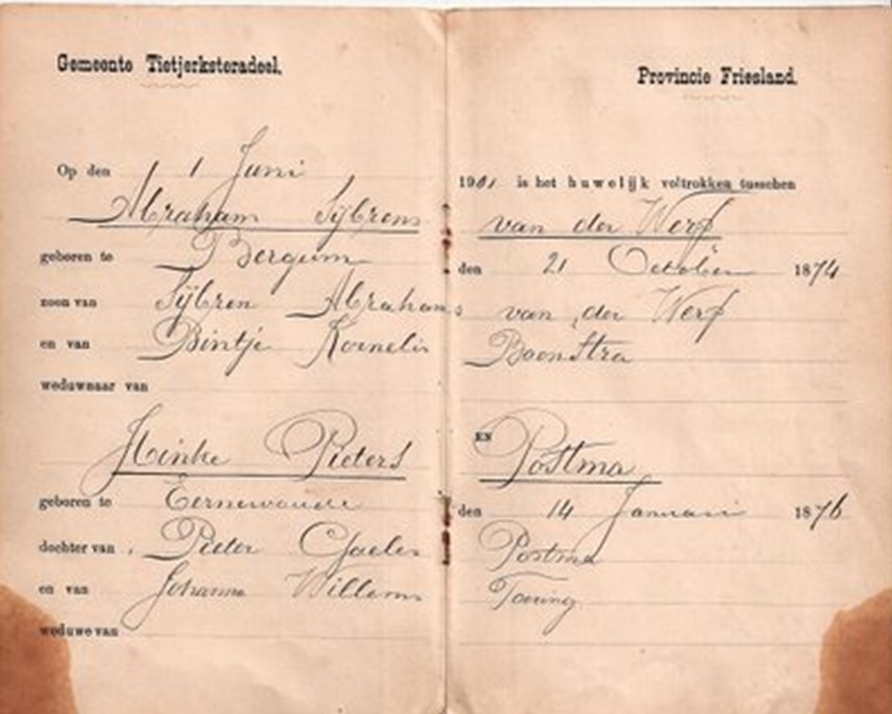 Gemeente Tietjerksteradeel. Provincie Friesland.
Op den 1 Juni 1901 is het huwelijk voltrokken tusschen
Abraham Sijbrens van der Werf
geboren te Bergum den 21 October 1874
zoon van Sijbren Abrahams van der Werf
en van Bintje Kornelis Boonstra
weduwnaar van
EN
Hinke Pieters Postma
geboren te Eernewoude den 14 Januari 1876
dochter van Pieter Tjaelers Postma
en van Johanna Willems
weduwe van